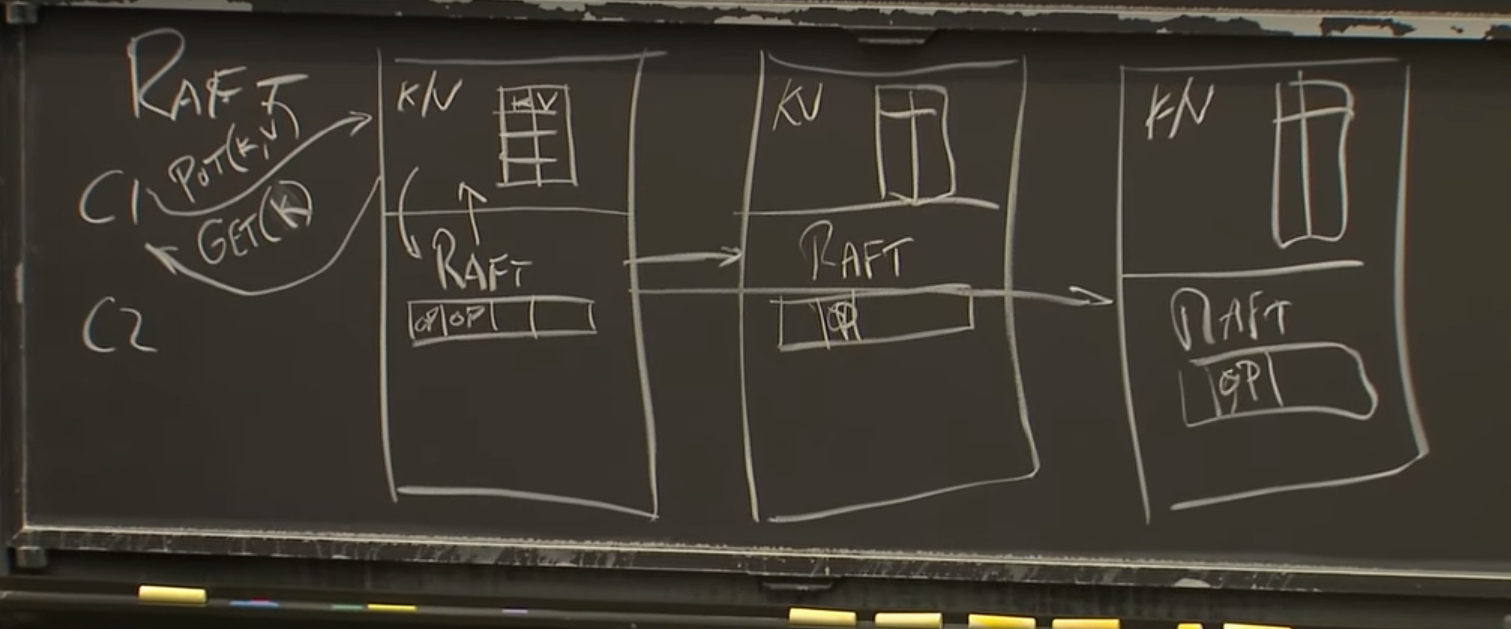 RAFT
PUT(K,V)
C1
GET(K)
C2
K/V
K V
RAFT
OP OP
KV
RAFT
OP
K/V
RAFT
OP